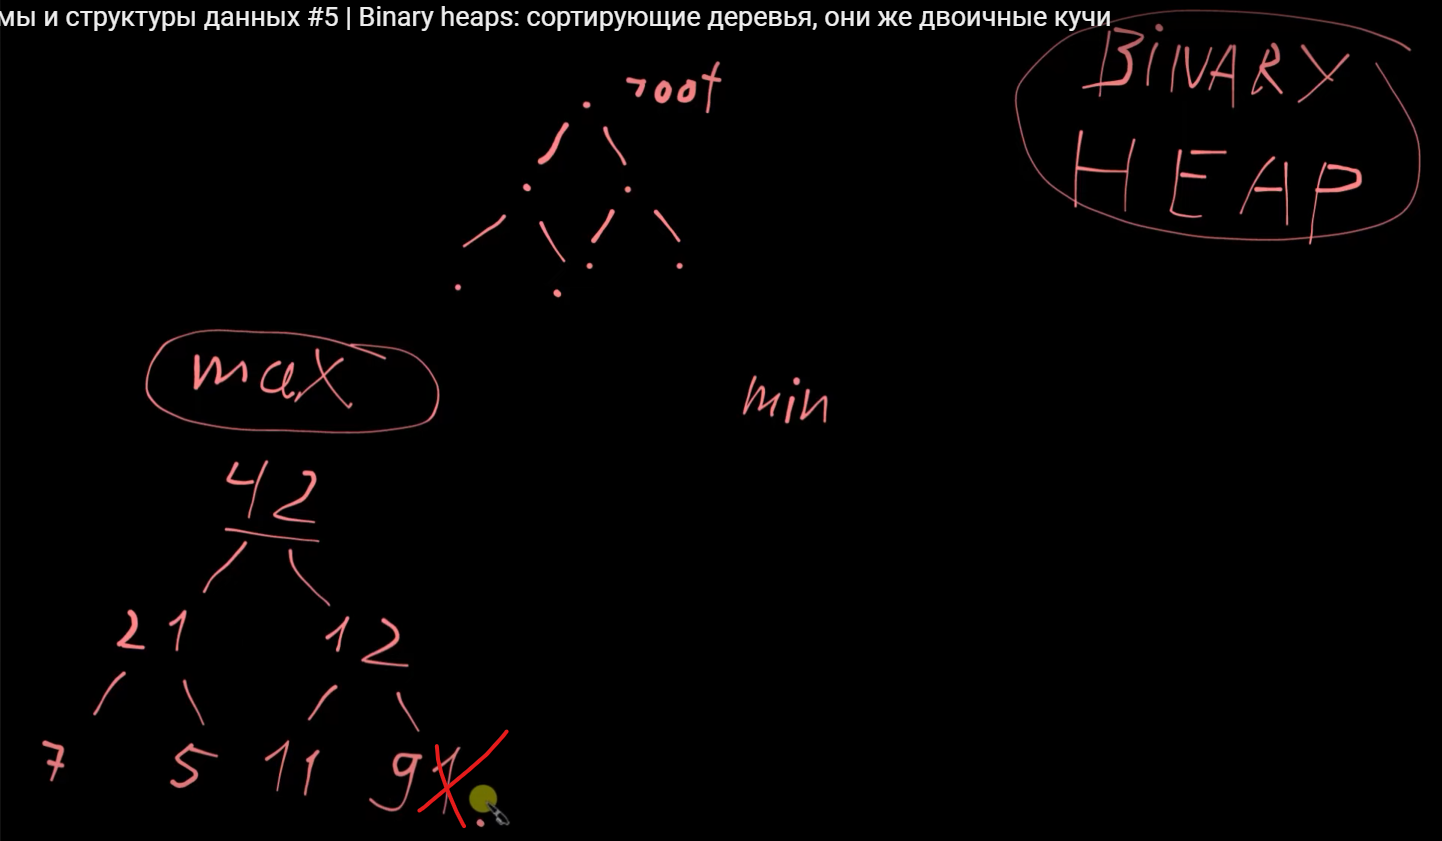 мы и структуры данных #5 | Binary heaps: сортирующие деревья, они же двоичные кучи
BiNARY
HEAP
root
max
min
42
21 12
7 5 11 9